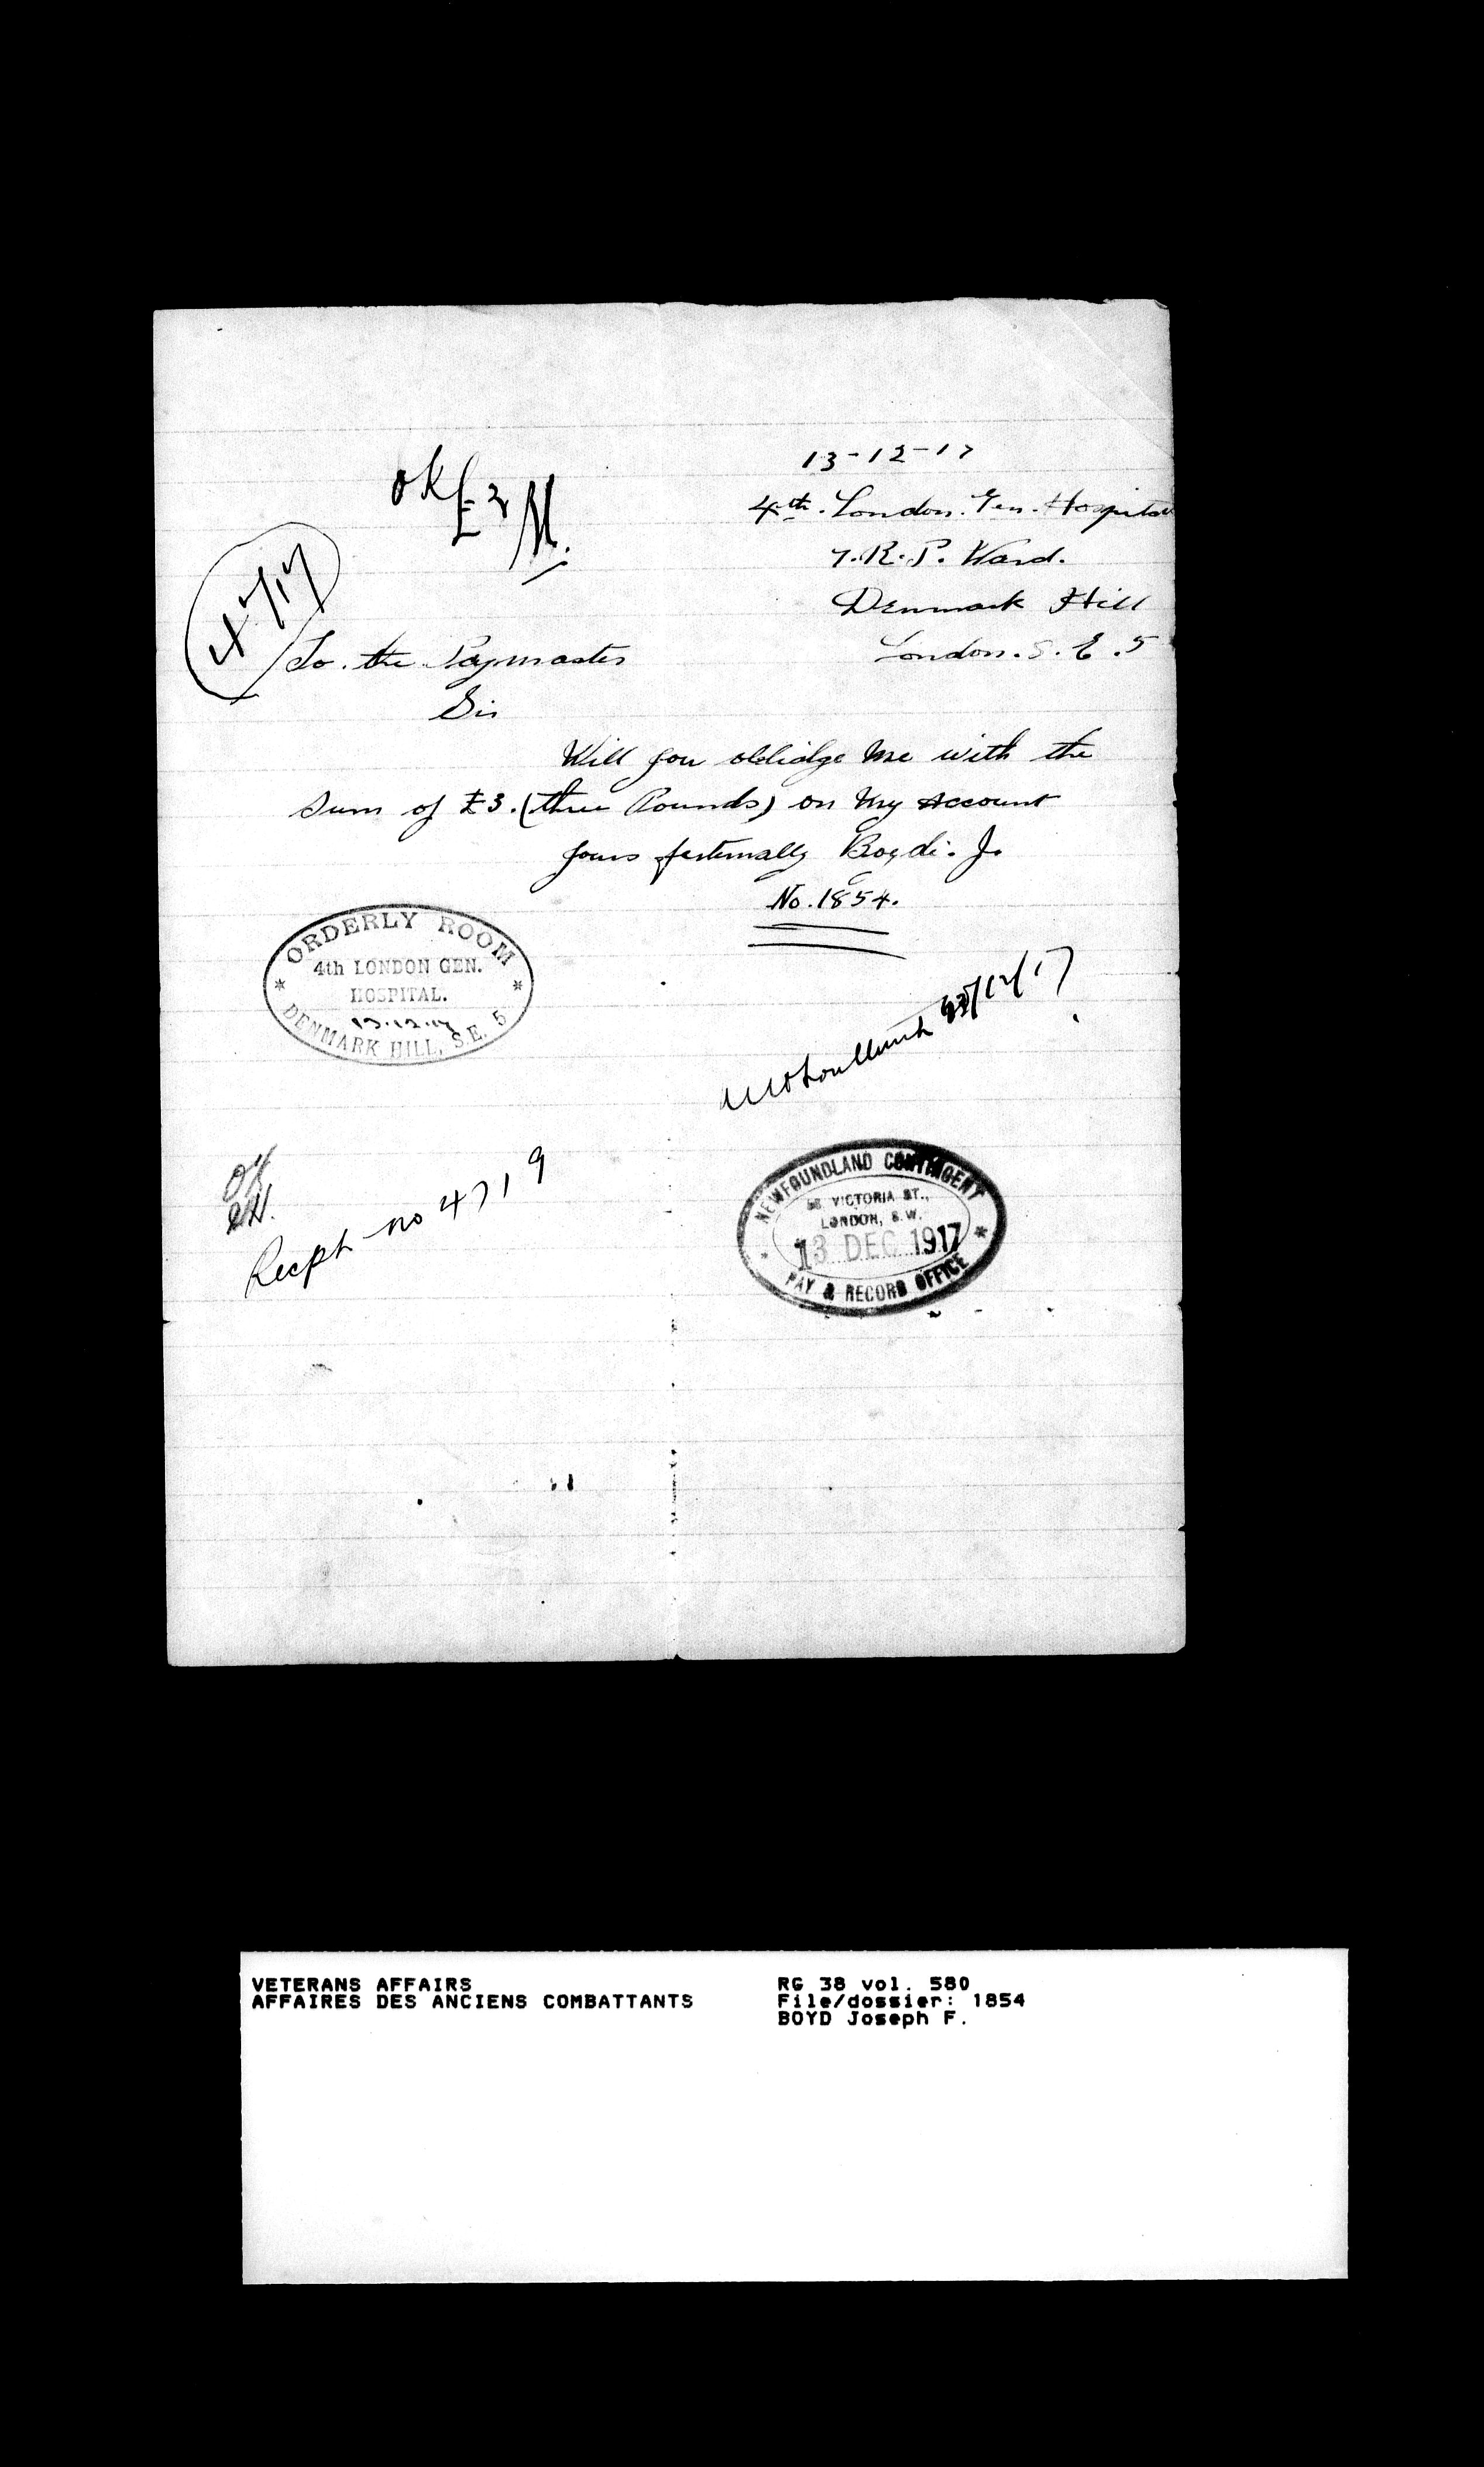 13-12-17
OK £2
4th. London. Gen. Hospital
7.R.P. Ward.
Denmark Hill
London. S. E. 5
To. the Paymaster
Sir
Will you oblidge Me with the
Sum of £3. (three Pounds) on My Account
yours Boyd. J.
No. 1854.
ORDERLY ROOM
4th LONDON GEN.
HOSPITAL.
13.12.17
DENMARK HILL, S.E. 5
/12/17
OK
Recpt no 4719
NEWFOUNDLAND CONTINGENT
58 VICTORIA ST.,
LONDON, S.W.
13 DEC 1917
PAY & RECORD OFFICE
VETERANS AFFAIRS
AFFAIRES DES ANCIENS COMBATTANTS
RG 38 vol. 580
File/dossier: 1854
BOYD Joseph F.